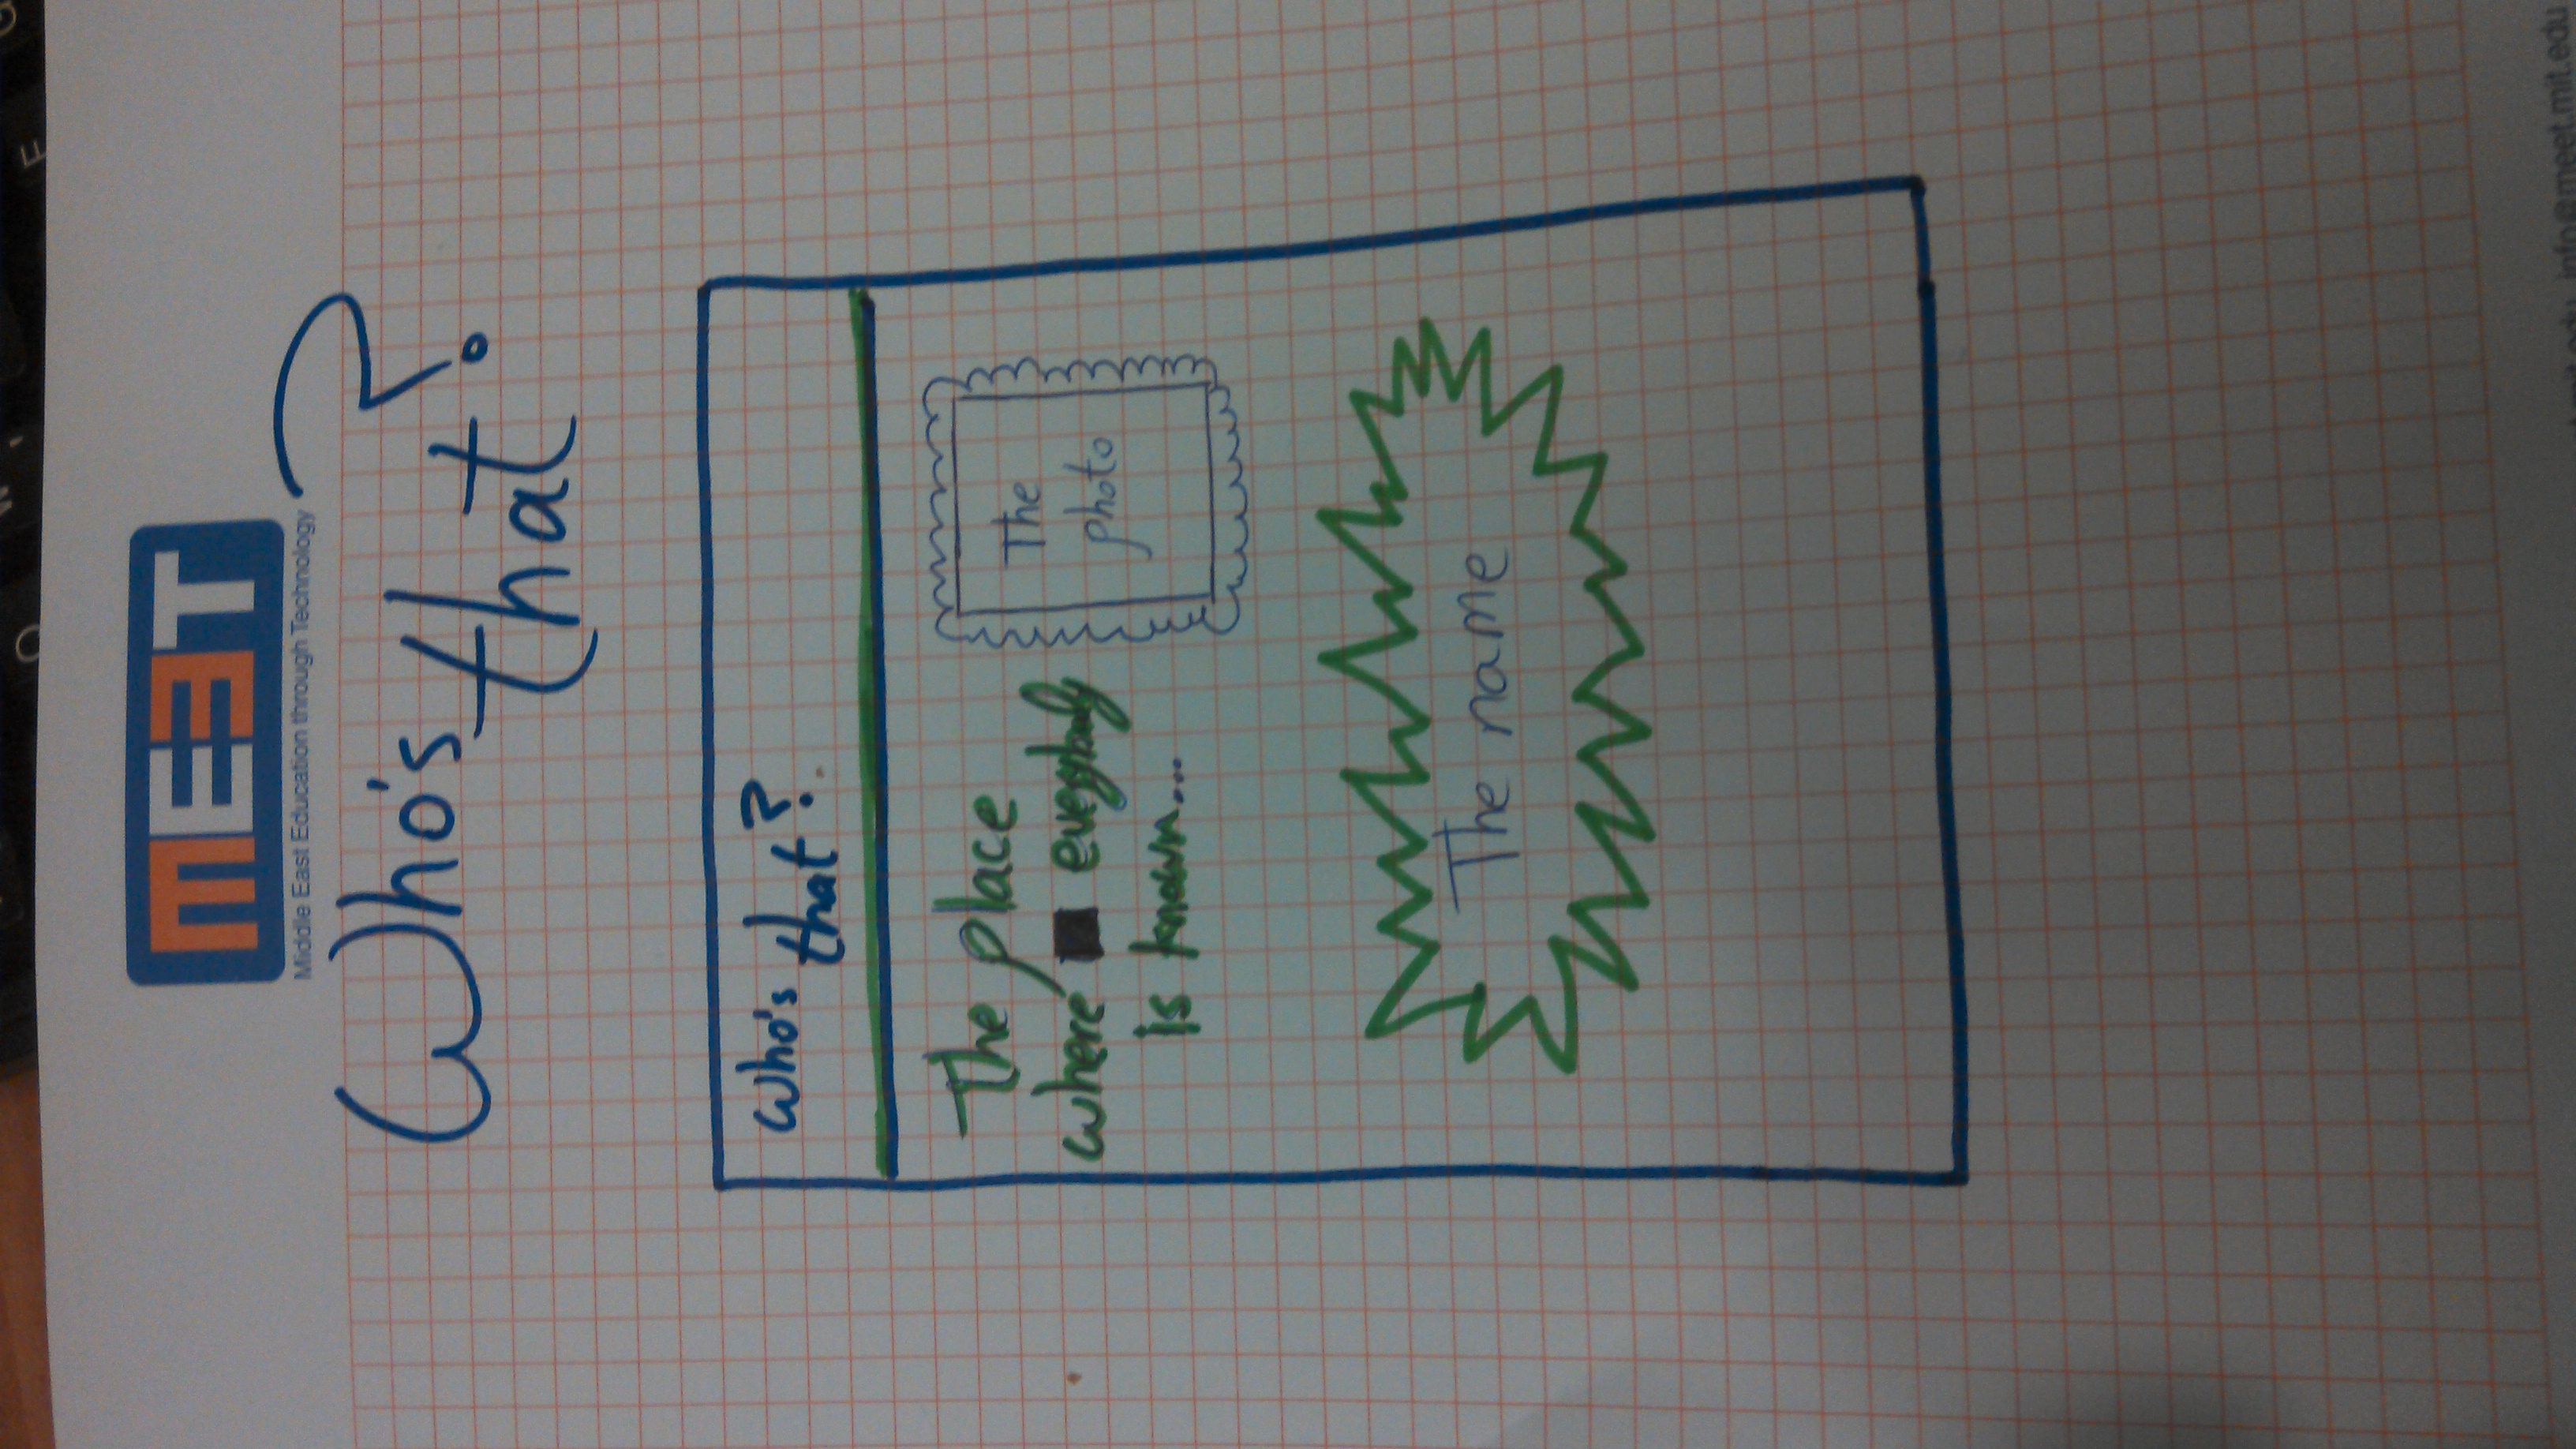 MEET
Middle East Education through Technology
Who's that?
Who's that?
The place
where everybody
is known...
The photo
The name
info@meet.mit.edu